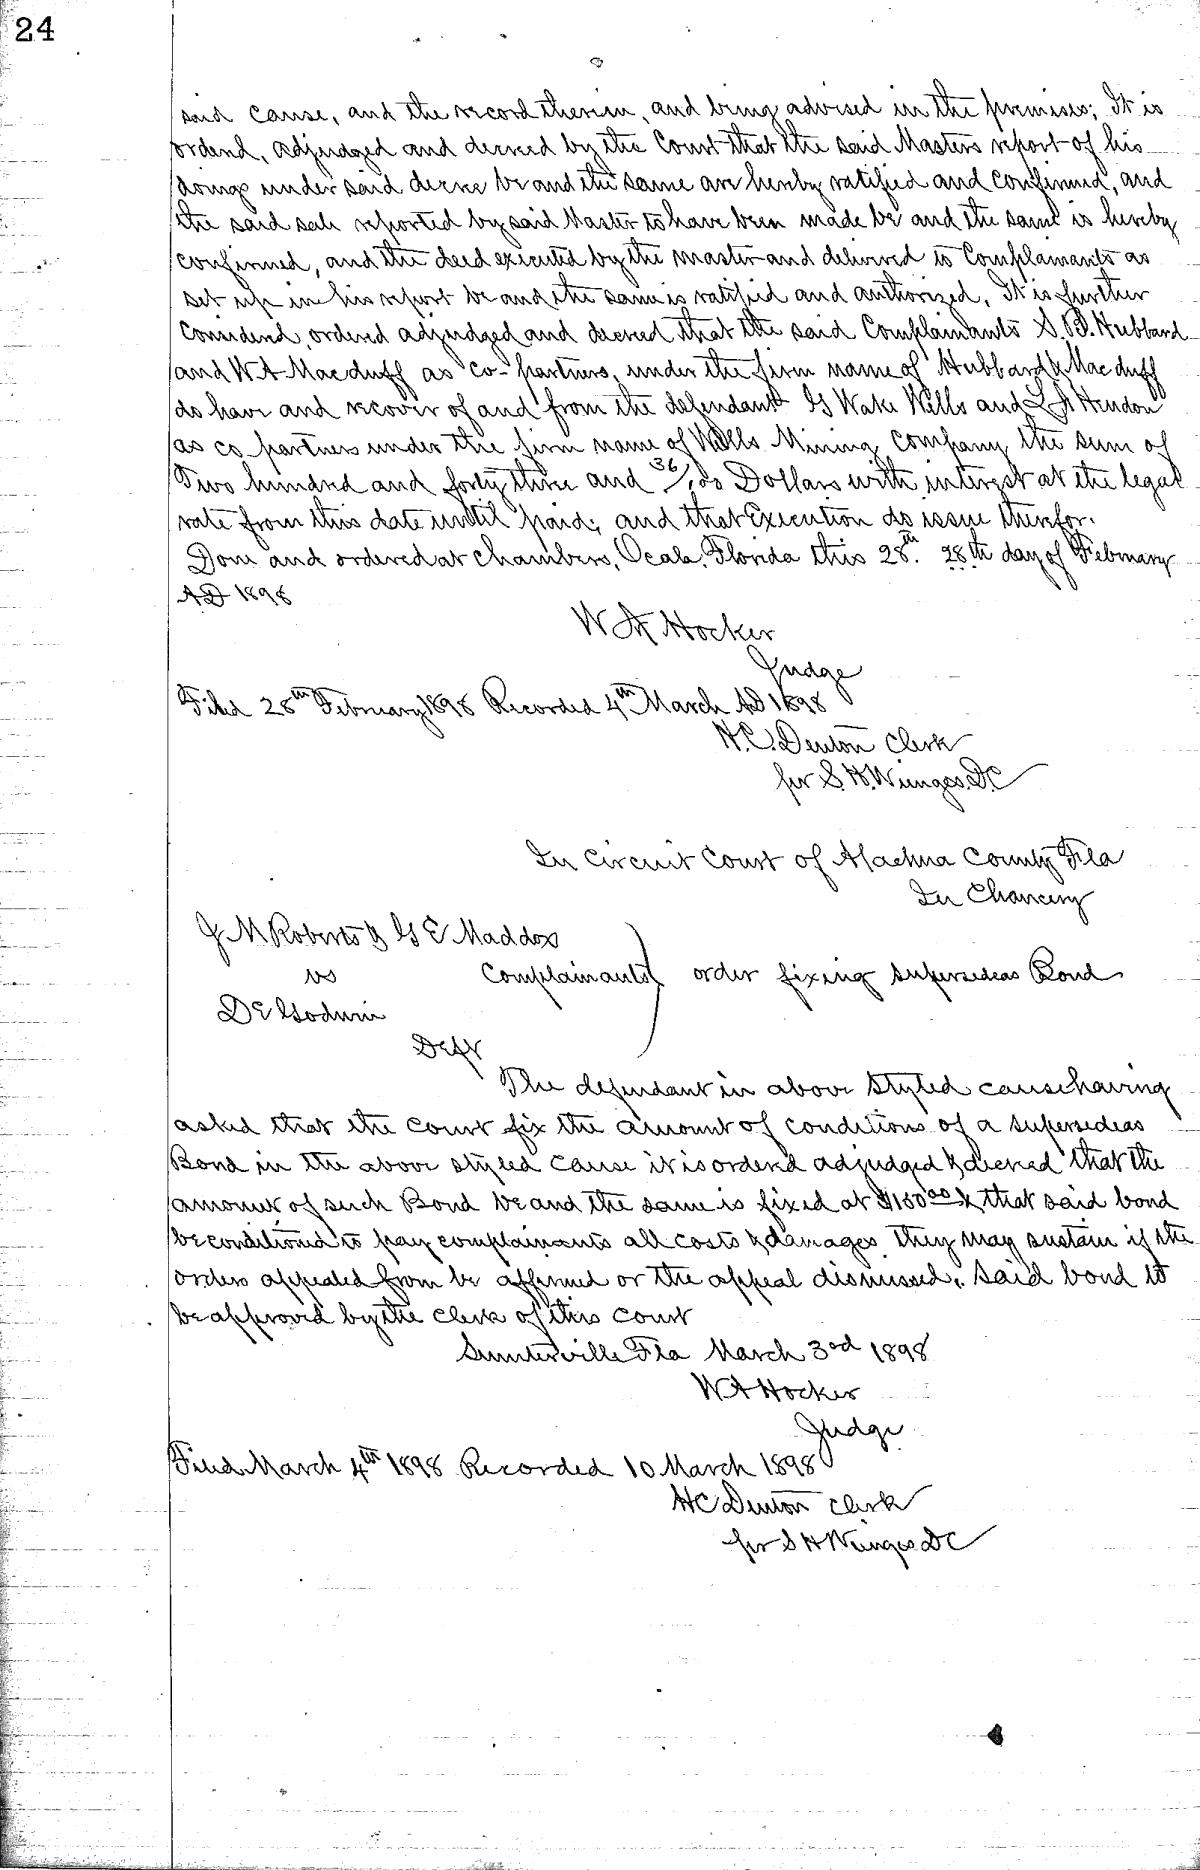 24
said cause, and the record therein, and being advised in the premises; It is
ordered, adjudged and decreed by the Court that the said Masters report of his
doings under said decree be and the same are hereby ratified and confirmed, and
the said sale reported by said Master to have been made be and the same is hereby
confirmed, and the deed executed by the master and delivered to Complainants as
set up in his report be and the same is ratified and authorized, It is further
Considered, ordered adjudged and decreed that the said Complainants S.B. Hubbard
and W A Macduff as co-partners, under the firm name of Hubbard & Macduff
do have and recover of and from the defendants G Wake Wells and L A Hendon
as co partners under the firm name of Wells Mining Company the sum of
Two hundred and forty three and 36/100 Dollars with interest at the legal
rate from this date until paid; and that Execution do issue therefor.
Done and ordered at Chambers, Ocala, Florida this 28th. 28th day of February
AD 1898
W A Hocker
Judge
Filed 28th February 1898 Recorded 4th March AD 1898
H.C. Denton Clerk
per S. H. Wienges D.C
In Circuit Court of Alachua County Fla
In Chancery
J M Roberts & G E Maddox
vs Complainants order fixing supersedeas Bond
D E Godwin
Deft
The defendant in above styled cause having
asked that the court fix the amount of conditions of a supersedeas
Bond in the above styled cause it is ordered adjudged & decreed that the
amount of such Bond be and the same is fixed at $150.00 & that said bond
be conditioned to pay complainants all costs & damages they may sustain if the
orders appealed from be affirmed or the appeal dismissed. Said bond to
be approved by the clerk of this court
Sumterville Fla March 3rd 1898
W A Hocker
Judge
Filed March 4th 1898 Recorded 10 March 1898
H C Denton Clerk
per S H Wienges DC